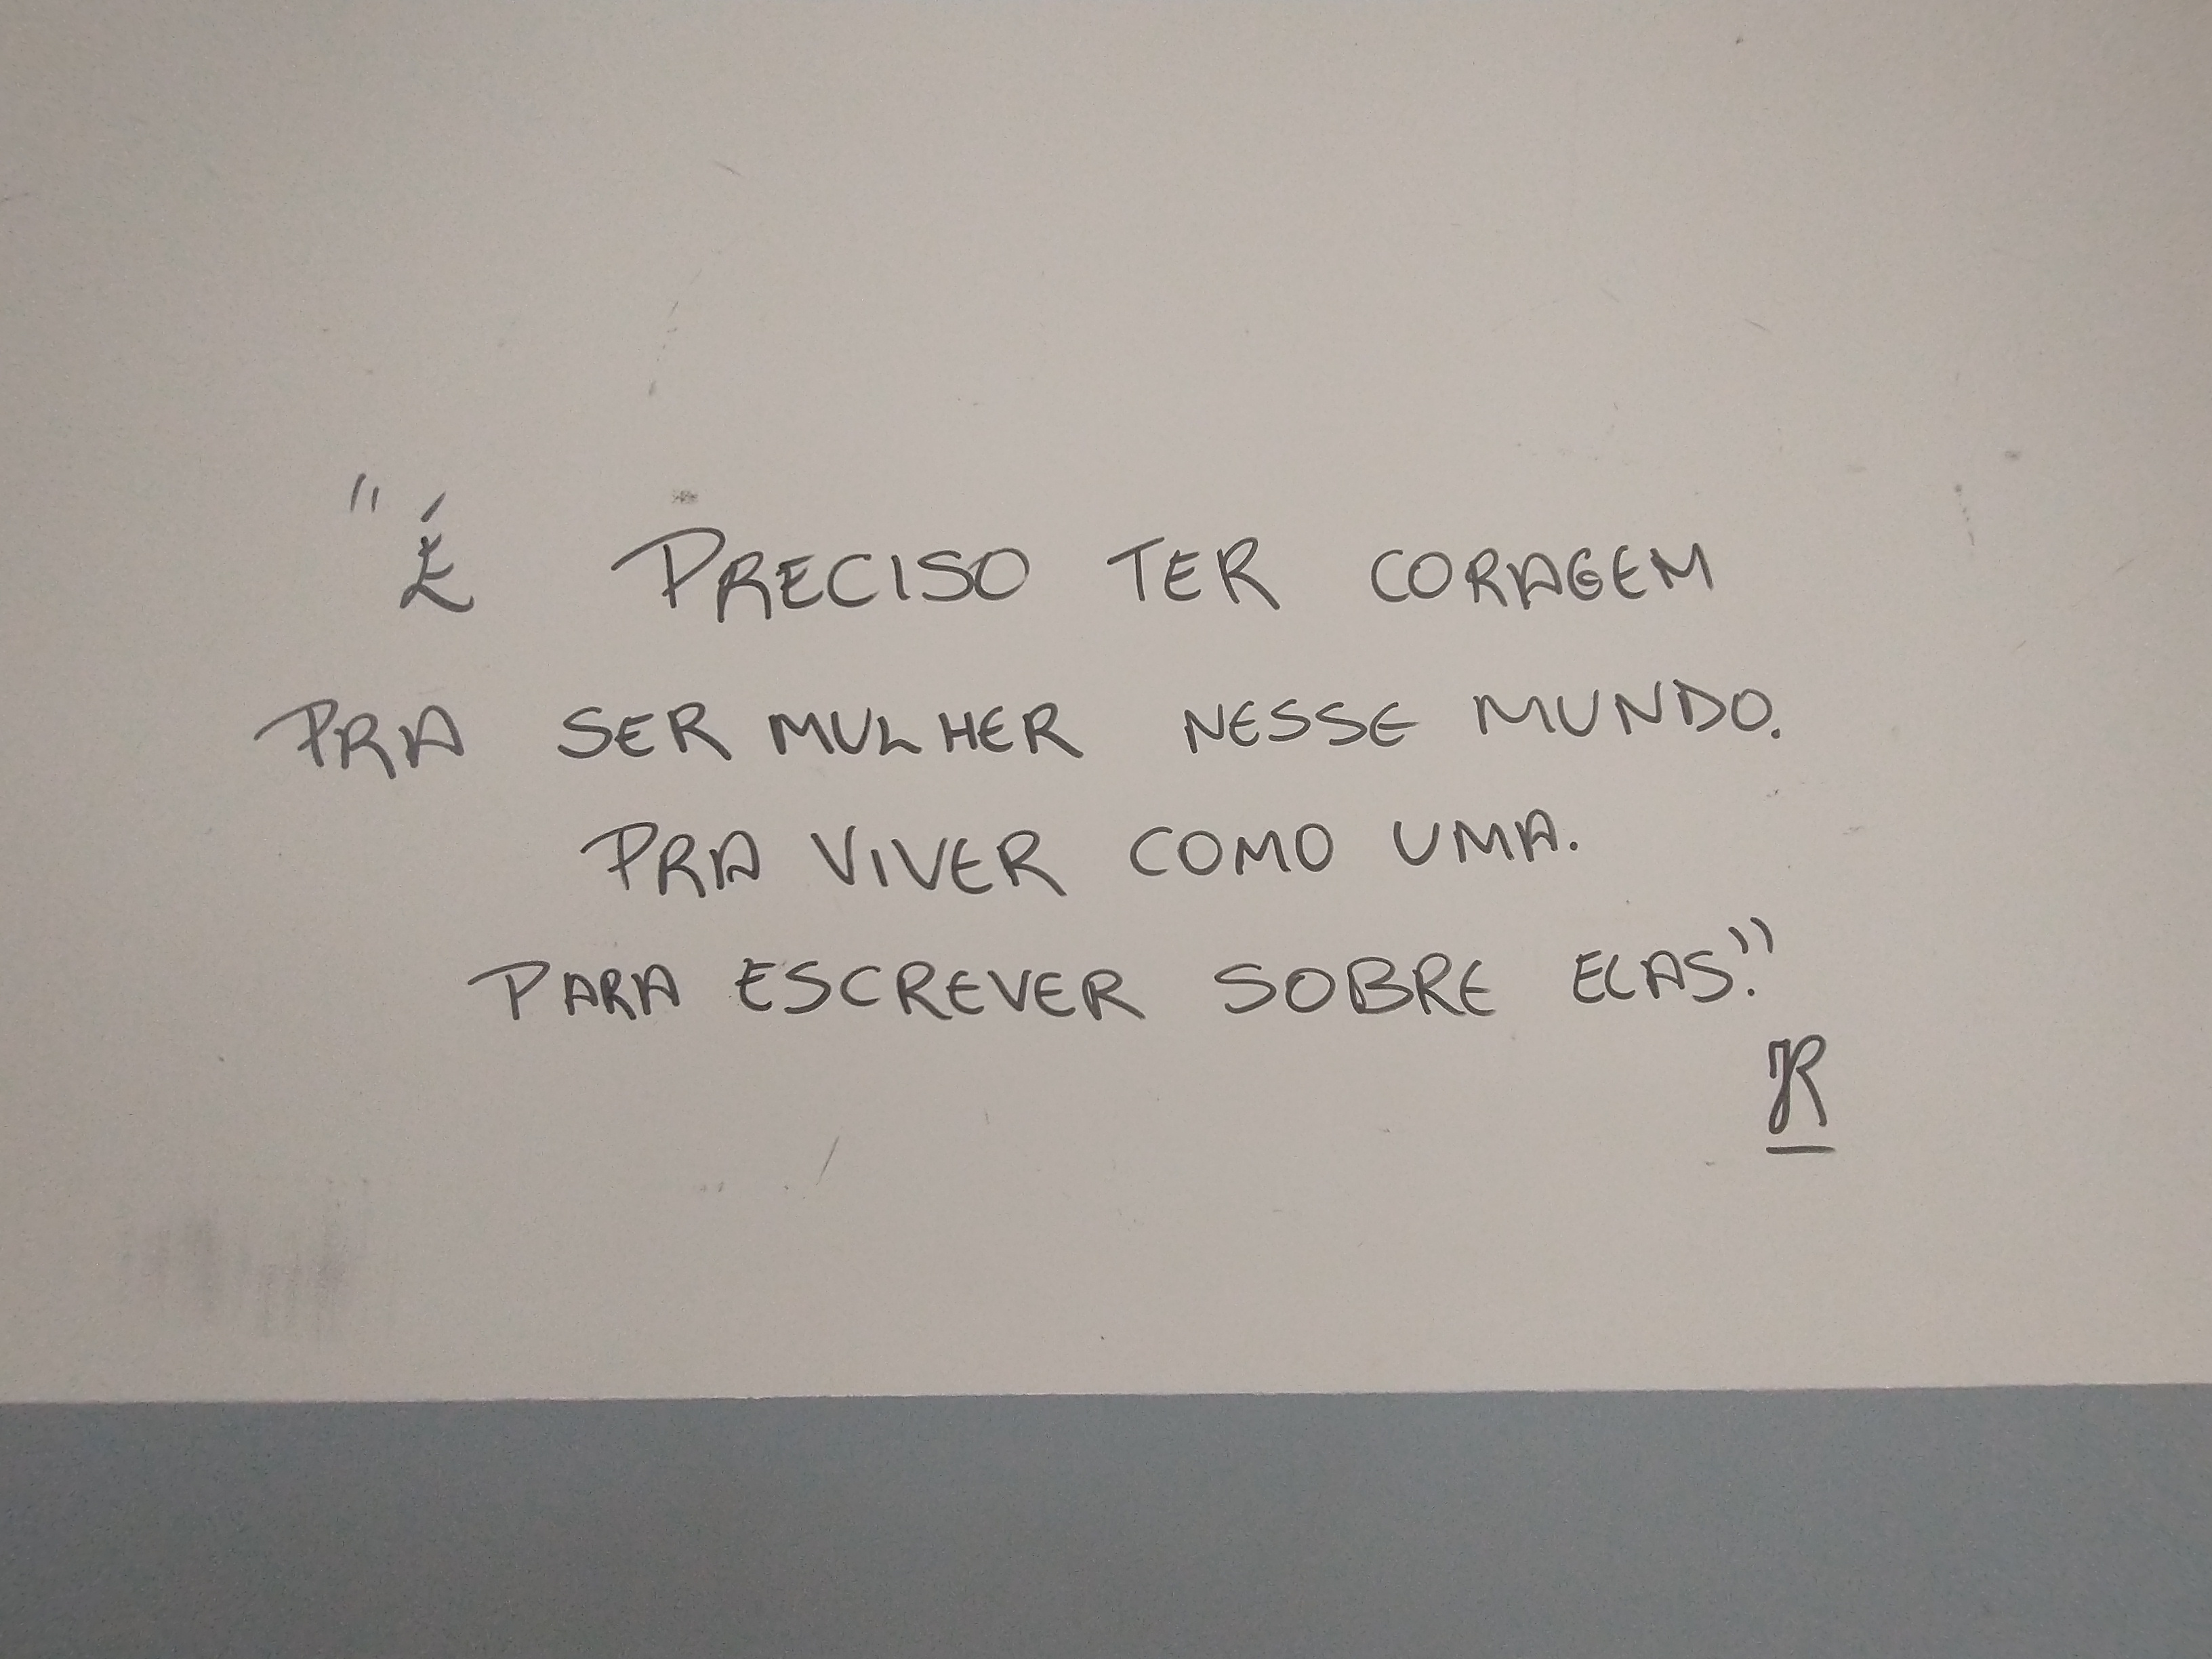 "É PRECISO TER CORAGEM
PRA SER MULHER NESSE MUNDO.
PRA VIVER COMO UMA.
PARA ESCREVER SOBRE ELAS."
R